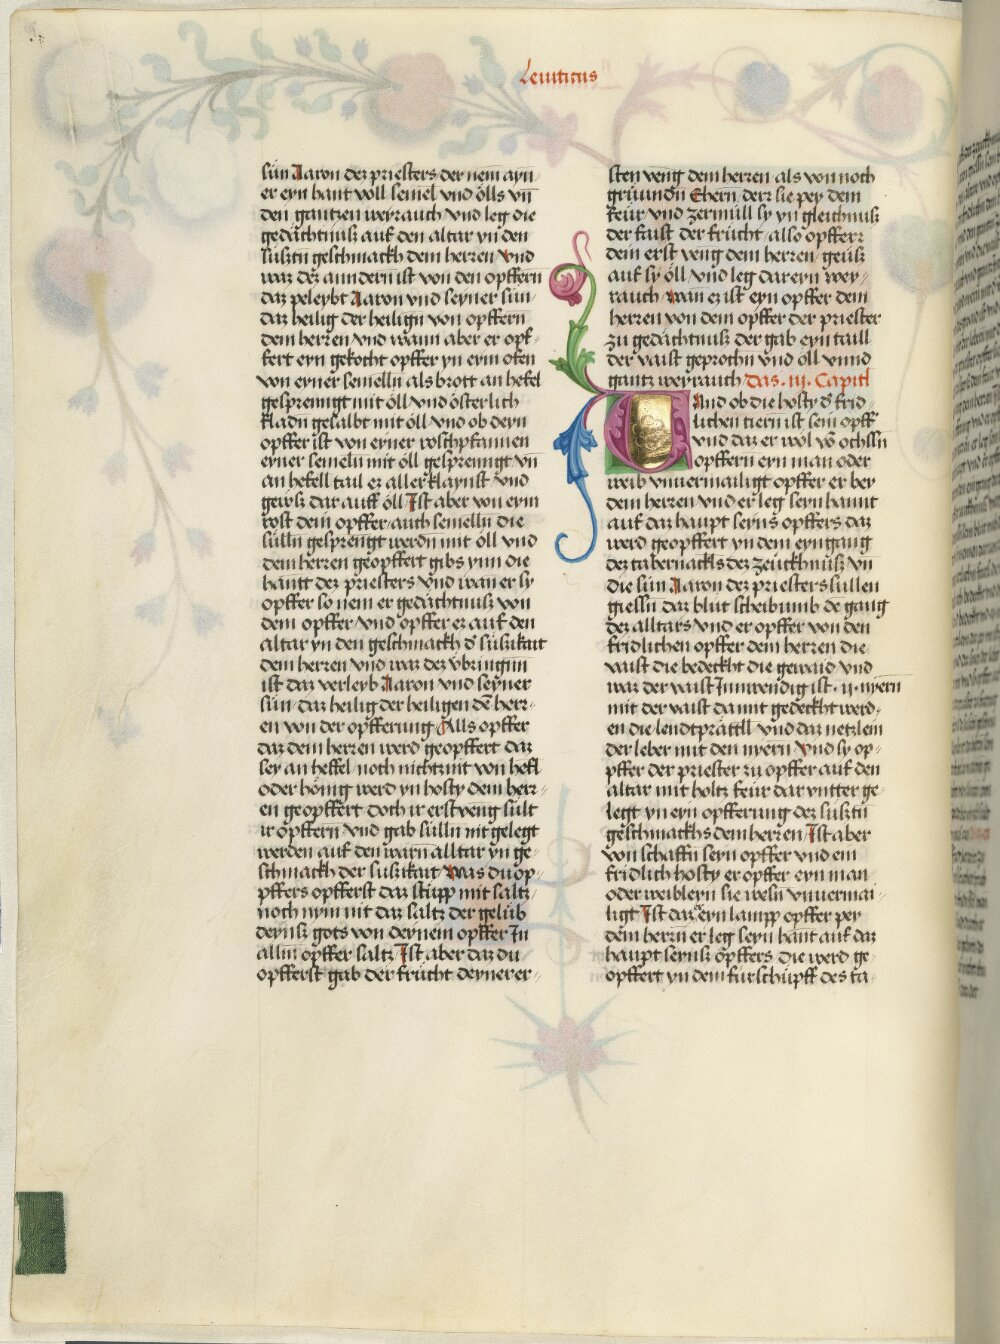 Leuiticus
sün Aaron dez priesters der nem ayn-
er eyn hant voll semel vnd ölls vn̄
den gantzen weyrauch vnd leg die
gedächtnuß auf den altar yn den
süsztn geschmackh dem herren Vnd
waz dez anndern ist von den opffern
daz peleybt Aaron vnd seyner sün
daz heilig der heilign von opffern
dem herren vnd wann aber er opf-
fert eyn gekocht opffer yn eym ofen
von eyner semelln als brott an hefel
gesprenngt mit öll vnd österlich
fladn gesalbt mit öll vnd ob deyn
opffer ist von eyner roschpfannen
eyner semeln mit öll gesprenngt vn̄
an hefell tail ez aller klaynst vnd
gewß dar auff öll Ist aber von eym
rost dein opffer auch semelln die
sülln gesprengt werdn mit öll vnd
dem herren geopffert gibs ynn die
hänntt dez priesters vnd wan er sy
opffer so nem er gedächtnuß von
dem opffer vnd opffer ez auf den
altar yn den geschmackh d̄ süsikait
dem herren vnd waz dez vbringnn
ist daz verleyb Aaron vnd seyner
sün daz heilig der heiligen dē herr-
en von der opfferung Alls opffer
daz dem herren werd geopffert daz
sey an heffel noch nichtz nit von hefl
oder hönig werd yn hosty dem herr-
en geopffert doch ir erst veng sült
ir opffern vnd gab sülln nit gelegt
werden auf den warn alltar yn ge-
schmack der süsikait Was du op-
pffers opfferst daz stüpp mit saltz
noch nym nit daz saltz der gelüb
deynß gots von deynem opffer In
allm opffer saltz Ist aber daz du
opfferst gab der frücht deyner er-
sten veng dem herren als von noch
grüundn Ehern derr sie pey dem
feür vnd zermüll sy yn gleichnuß
der faist der frücht also opfferr
dein erst veng dem herren geuß
auf sy öll vnd leg dar eyn wey-
rauch wan ez ist eyn opffer dem
herren von dem opffer der priester
zu gedächtnuß der gab eyn taill
der vaist geprochn vnd öll vnnd
gantz weyrauch Das .iii. Capitl
Vnd ob die hosty d̄ frid-
lichen tiern ist sein opff
vnd daz er wöl vō ochssn
opffern eyn man oder
weib vnuermailigt opffer er bey
dem herren vnd er leg seyn hannt
auf daz haupt seyns opffers daz
werd geopffert yn dem eyngang
dez tabernackls dez zeückhnüß vn̄
die sün Aaron dez priesters süllen
giessn daz blüt scheibumb de gang
dez alltars vnd er opffer von den
fridlichen opffer dem herren die
vaist die bedeckht die gewaid vnd
waz der vaist Innwendig ist .ii. nyern
mit der vaist damit gedeckht werd-
en die lendtprättll vnd daz netzlein
der leber mit den nyern Vnd sy op-
pffer der priester zu opffer auf den
altar mit holtz feür dar vntter ge-
legt yn eyn opfferung dez süsztn
geschmackhs dem herren Ist aber
von schaffn seyn opffer vnd ein
fridlich hosty er opffer eyn man
oder weibleyn sie wesn vnuermai-
ligt Ist daz eyn lampp opffer per
dem herrn er leg seyn hant auf daz
haupt seynß opffers die werd ge-
opffert yn dem fürschüpff des ta-